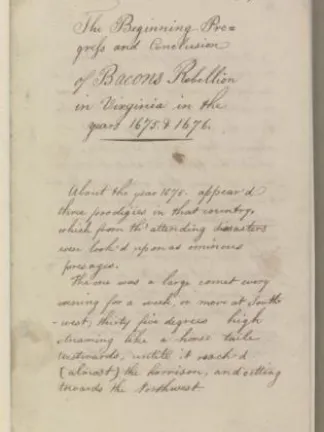 The Beginning Pro=
gress and Conclusion
of Bacons Rebellion
in Virginia in the
years 1675 & 1676.
About the year 1675. appear'd
three prodigies in that country,
which from th' attending disasters
were look'd upon as ominous
presages.
The one was a large comet every
evening for a week, or more at South-
-west; thirty five degrees high
streaming like a horse taile
westwards, untill it reach'd
(almost) the horrison, and setting
towards the Northwest.